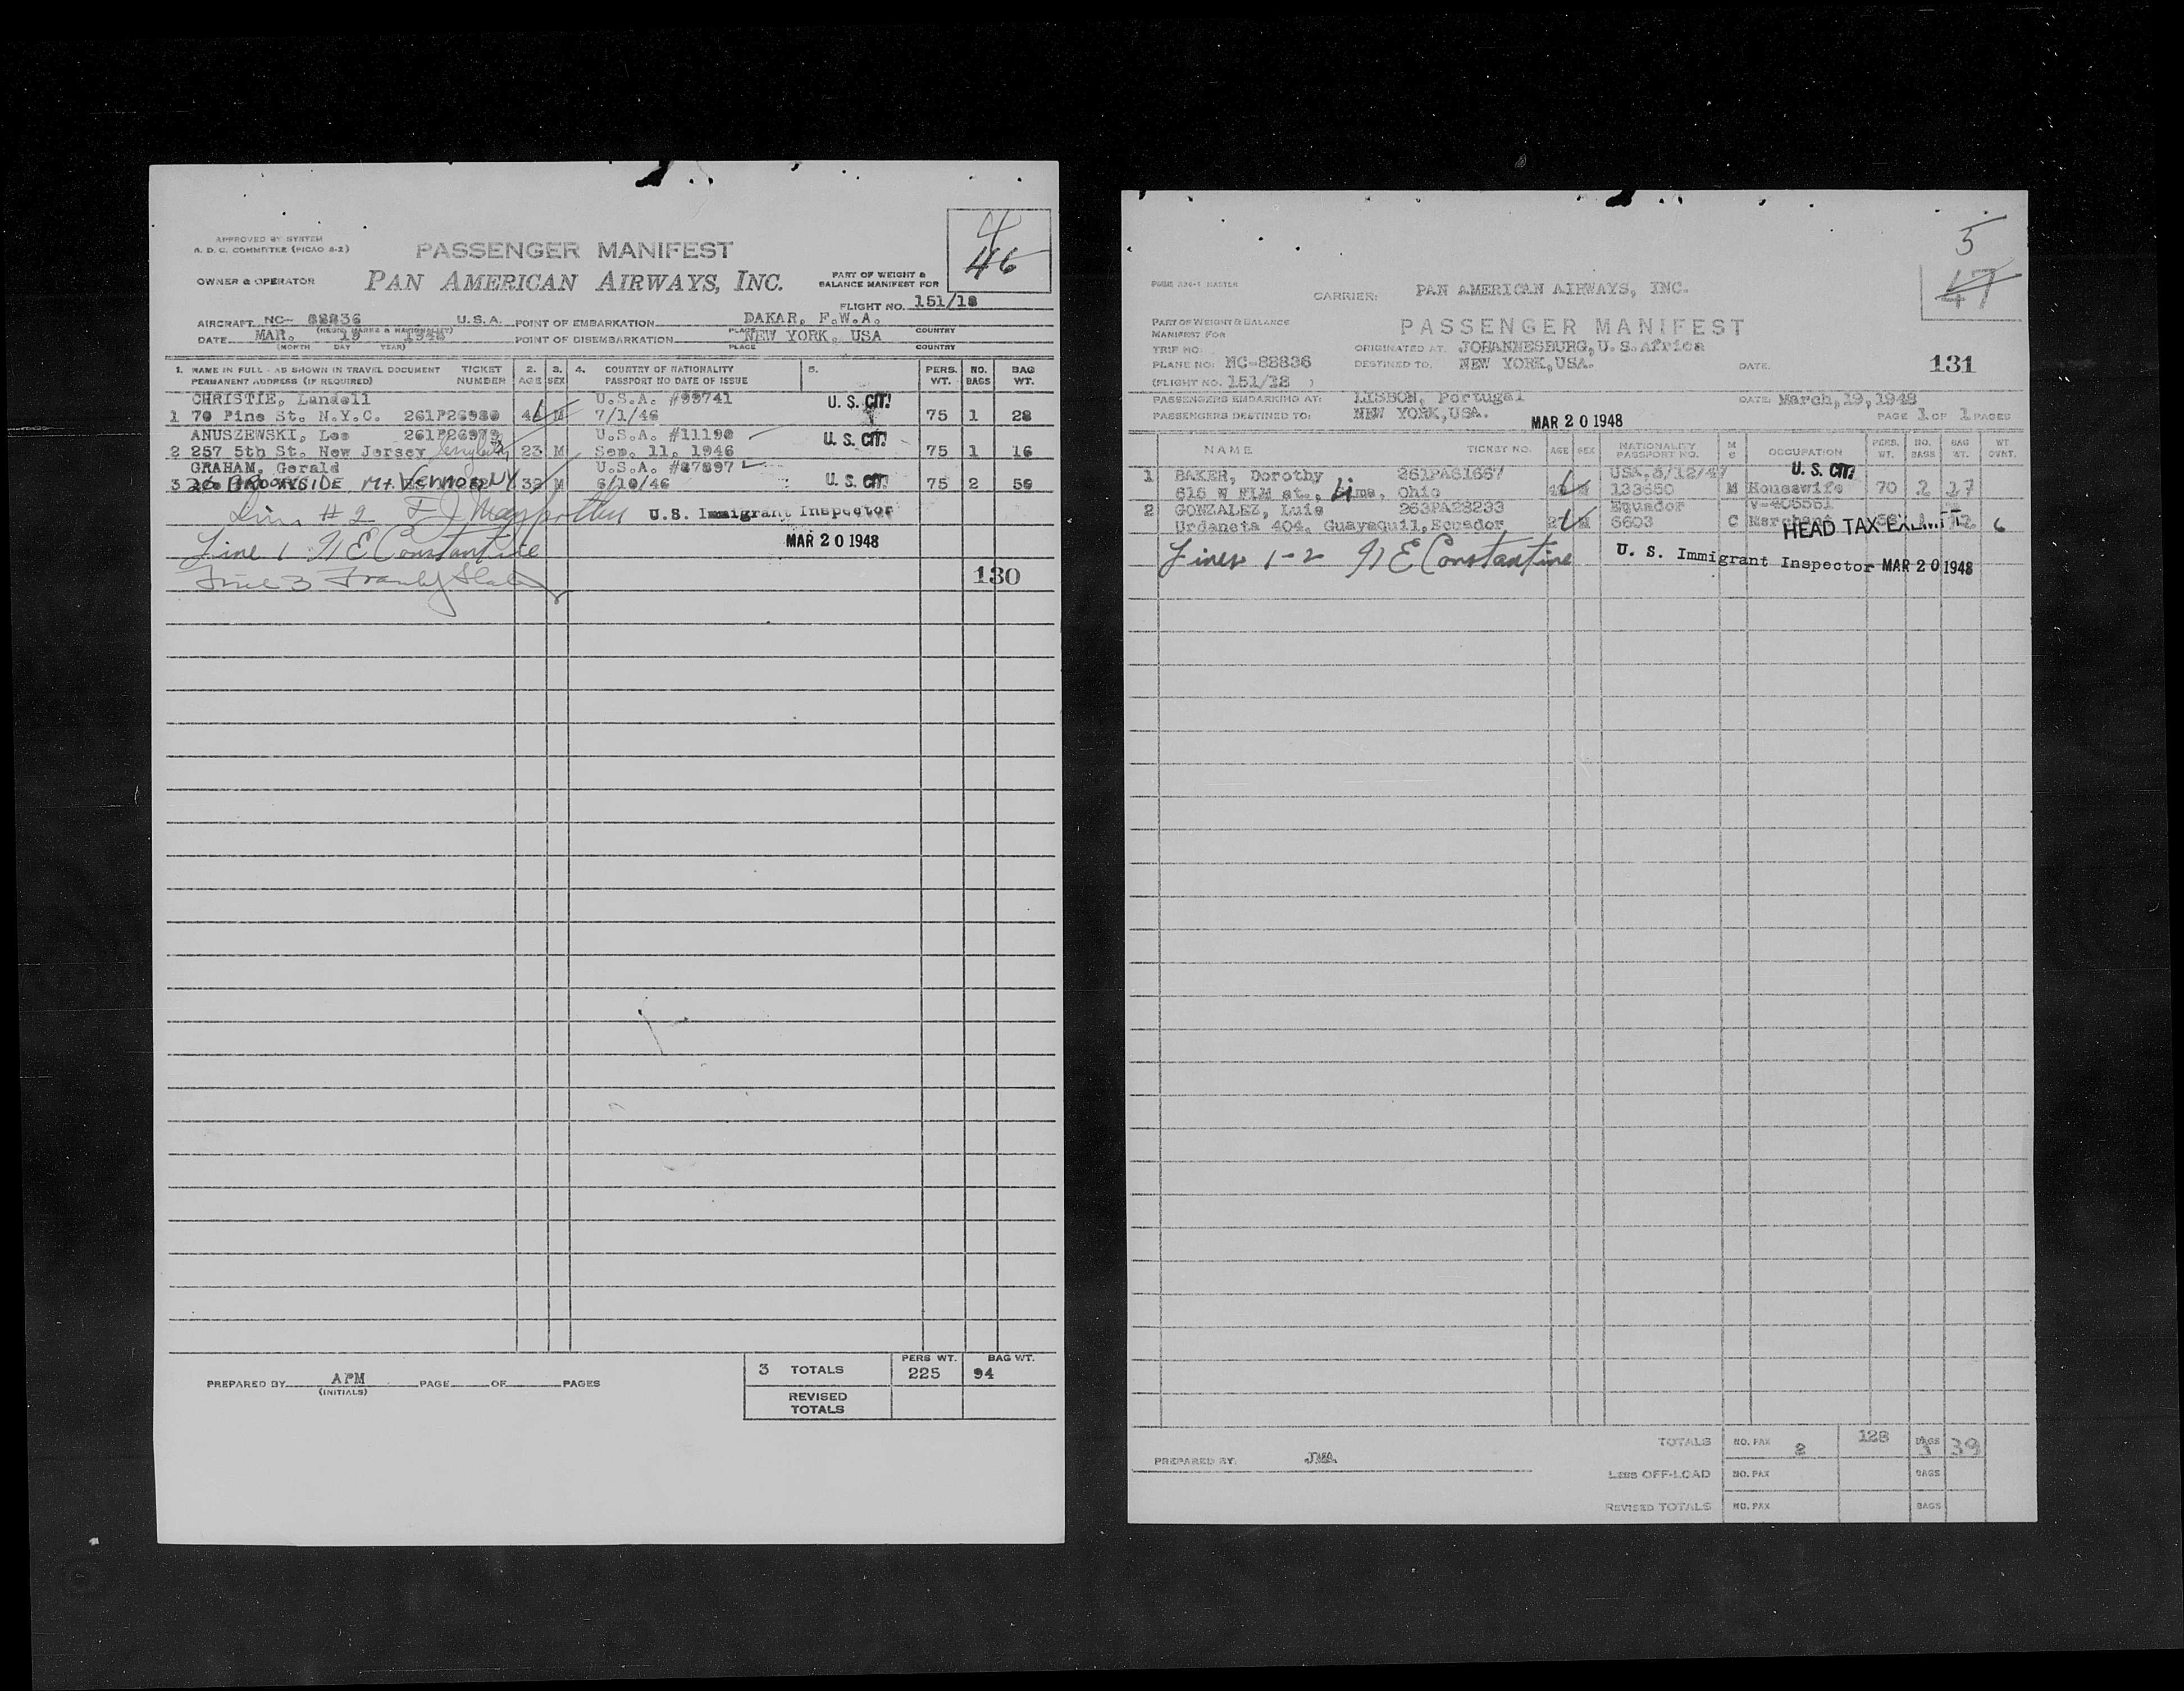 4
46
APPROVED BY SYSTEM
A. D. C. COMMITTEE (PICAO 8-2)
PASSENGER MANIFEST
OWNER & OPERATOR PAN AMERICAN AIRWAYS, INC.
PART OF WEIGHT &
BALANCE MANIFEST FOR
FLIGHT NO. 151/18
AIRCRAFT NC- 88836 U.S.A. POINT OF EMBARKATION DAKAR, F.W.A.
DATE MAR. 19 1948 POINT OF DISEMBARKATION NEW YORK, USA
(MONTH DAY YEAR) PLACE COUNTRY
1. NAME IN FULL - AS SHOWN IN TRAVEL DOCUMENT TICKET 2. 3. 4. COUNTRY OF NATIONALITY 5. PERS. NO. BAG
PERMANENT ADDRESS (IF REQUIRED) NUMBER AGE SEX PASSPORT NO DATE OF ISSUE WT. BAGS WT.
CHRISTIE, Landell U.S.A. #99741 U. S. CIT.
1 70 Pine St. N.Y.C. 261P26980 M 7/1/46 75 1 28
ANUSZEWSKI, Leo 261P26979 U.S.A. #11190 U. S. CIT.
2 257 5th St. New Jersey 23 M Sep. 11, 1946 75 1 16
GRAHAM, Gerald U.S.A. #87897 U. S. CIT.
3 BROOKSIDE Mt. VERNON NY 39 M 6/10/46 75 2 50
Line # 2 U.S. Immigrant Inspector
Line 1 N E Constantine MAR 20 1948
Line 3 130
PREPARED BY APM PAGE OF PAGES
(INITIALS)
PERS WT. BAG WT.
3 TOTALS 225 94
REVISED
TOTALS
5
47
CARRIER: PAN AMERICAN AIRWAYS, INC.
PART OF WEIGHT & BALANCE
MANIFEST FOR
PASSENGER MANIFEST
TRIP NO: ORIGINATED AT: JOHANNESBURG, U. S. Africa
PLANE NO: NC-88836 DESTINED TO: NEW YORK, USA. DATE: 131
(FLIGHT NO. 151/18 )
PASSENGERS EMBARKING AT: LISBON, Portugal DATE: March, 19, 1948
PASSENGERS DESTINED TO: NEW YORK, USA. MAR 20 1948 PAGE 1 OF 1 PAGES
NAME TICKET NO. AGE SEX NATIONALITY PASSPORT NO. M S OCCUPATION PERS. WT. NO. BAGS BAG WT. WT. OVRT.
U. S. CIT.
1 BAKER, Dorothy 261PA61667 USA, 5/12/47
615 W ELM st., Lima, Ohio 133650 M Housewife 70 2 27
2 GONZALEZ, Luis 263PA28233 Ecuador V-405551
Urdaneta 404, Guayaquil, Ecuador 6603 C Merchant 12 6
HEAD TAX EXEMPT
Lines 1-2 N E Constantine U. S. Immigrant Inspector MAR 20 1948
TOTALS NO. PAX 2 128 BAGS 3 39
PREPARED BY: JMA
LESS OFF-LOAD NO. PAX BAGS
REVISED TOTALS NO. PAX BAGS